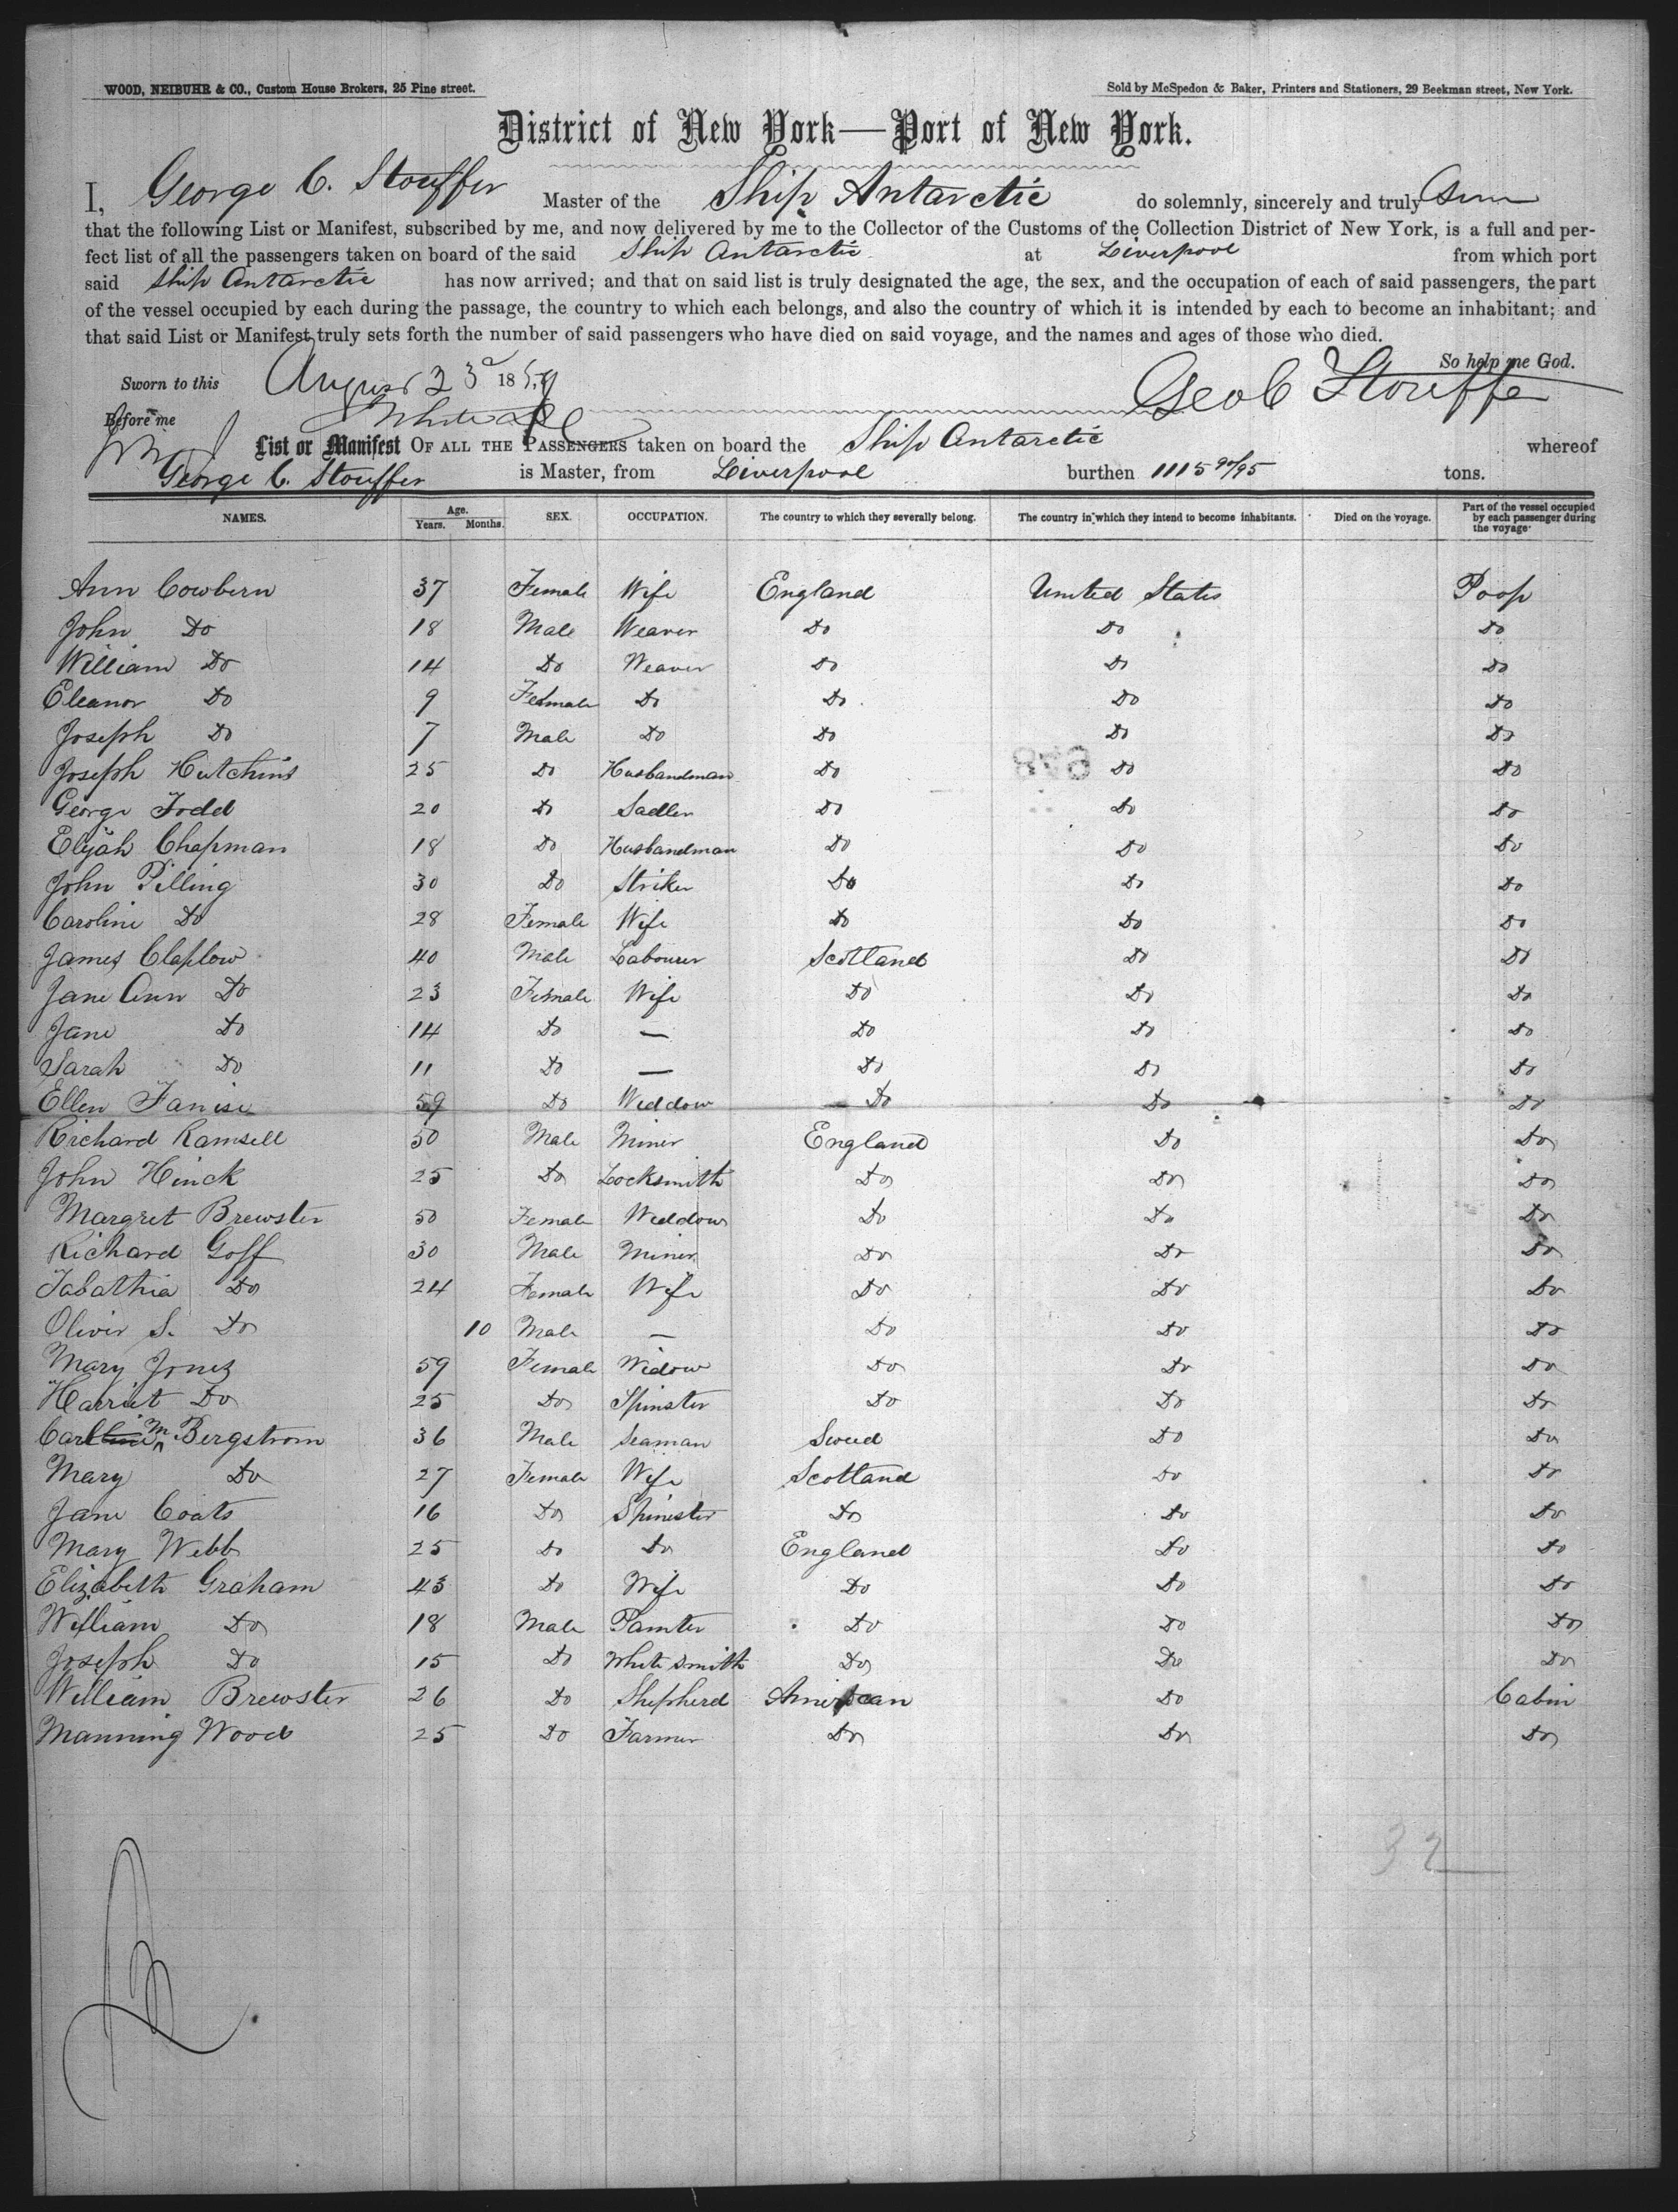 WOOD, NEIBUHR & CO., Custom House Brokers, 25 Pine street. Sold by McSpedon & Baker, Printers and Stationers, 29 Beekman street, New York.
District of New York—Port of New York.
I, George C. Stouffer Master of the Ship Antarctic do solemnly, sincerely and truly
that the following List or Manifest, subscribed by me, and now delivered by me to the Collector of the Customs of the Collection District of New York, is a full and per-
fect list of all the passengers taken on board of the said Ship Antarctic at Liverpool from which port
said Ship Antarctic has now arrived; and that on said list is truly designated the age, the sex, and the occupation of each of said passengers, the part
of the vessel occupied by each during the passage, the country to which each belongs, and also the country of which it is intended by each to become an inhabitant; and
that said List or Manifest truly sets forth the number of said passengers who have died on said voyage, and the names and ages of those who died.
So help me God.
Sworn to this August 23d 185 Geo C Stouffer
Before me
List or Manifest OF ALL THE PASSENGERS taken on board the Ship Antarctic whereof
George C. Stouffer is Master, from Liverpool burthen 1115 90/95 tons.
NAMES. Age. Years. Months. SEX. OCCUPATION. The country to which they severally belong. The country in which they intend to become inhabitants. Died on the voyage. Part of the vessel occupied by each passenger during the voyage
Ann Cowbern 37 Female Wife England United States Poop
John Do 18 Male Weaver Do Do Do
William Do 14 Do Weaver Do Do Do
Eleanor Do 9 Female Do Do Do Do
Joseph Do 7 Male Do Do Do Do
Joseph Hutchins 25 Do Husbandman Do Do Do
George Todd 20 Do Sadler Do Do Do
Elijah Chapman 18 Do Husbandman Do Do Do
John Pilling 30 Do Striker Do Do Do
Caroline Do 28 Female Wife Do Do Do
James Claplow 40 Male Labourer Scotland Do Do
Jane Ann Do 23 Female Wife Do Do Do
Jane Do 14 Do — Do Do Do
Sarah Do 11 Do — Do Do Do
Ellen 59 Do Widdow Do Do Do
Richard Ramsell 50 Male Miner England Do Do
John Hinck 25 Do Locksmith Do Do Do
Margret Brewster 50 Female Widdow Do Do Do
Richard Goff 30 Male Miner Do Do Do
Tabathia Do 24 Female Wife Do Do Do
Oliver S. Do 10 Male — Do Do Do
Mary Jones 59 Female Widow Do Do Do
Harriet Do 25 Do Spinster Do Do Do
Carl M Bergstrom 36 Male Seaman Sweed Do Do
Mary Do 27 Female Wife Scotland Do Do
Jane Coats 16 Do Spinester Do Do Do
Mary Webb 25 Do Do England Do Do
Elizabeth Graham 43 Do Wife Do Do Do
William Do 18 Male Painter Do Do Do
Joseph Do 15 Do White Smith Do Do Do
William Brewster 26 Do Shepherd American Do Cabin
Manning Wood 25 Do Farmer Do Do Do
32